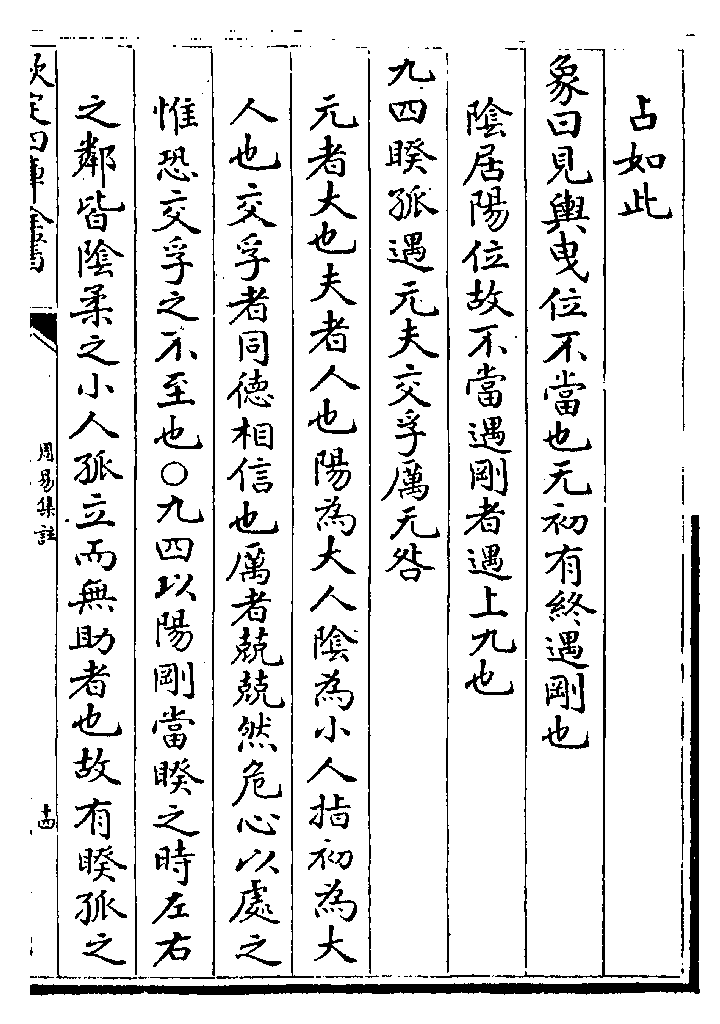 占如此
象曰見輿曳位不當也无初有終遇剛也
陰居陽位故不當遇剛者遇上九也
九四睽孤遇元夫交孚厲无咎
元者大也夫者人也陽為大人陰為小人指初為大
人也交孚者同德相信也厲者兢兢然危心以處之
惟恐交孚之不至也○九四以陽剛當睽之時左右
之鄰皆陰柔之小人孤立而無助者也故有睽孤之
欽定四庫全書
周易集註
十四